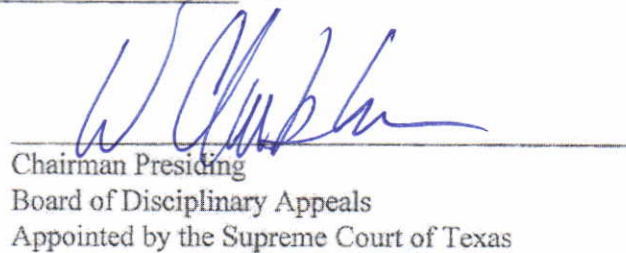 Chairman Presiding
Board of Disciplinary Appeals
Appointed by the Supreme Court of Texas